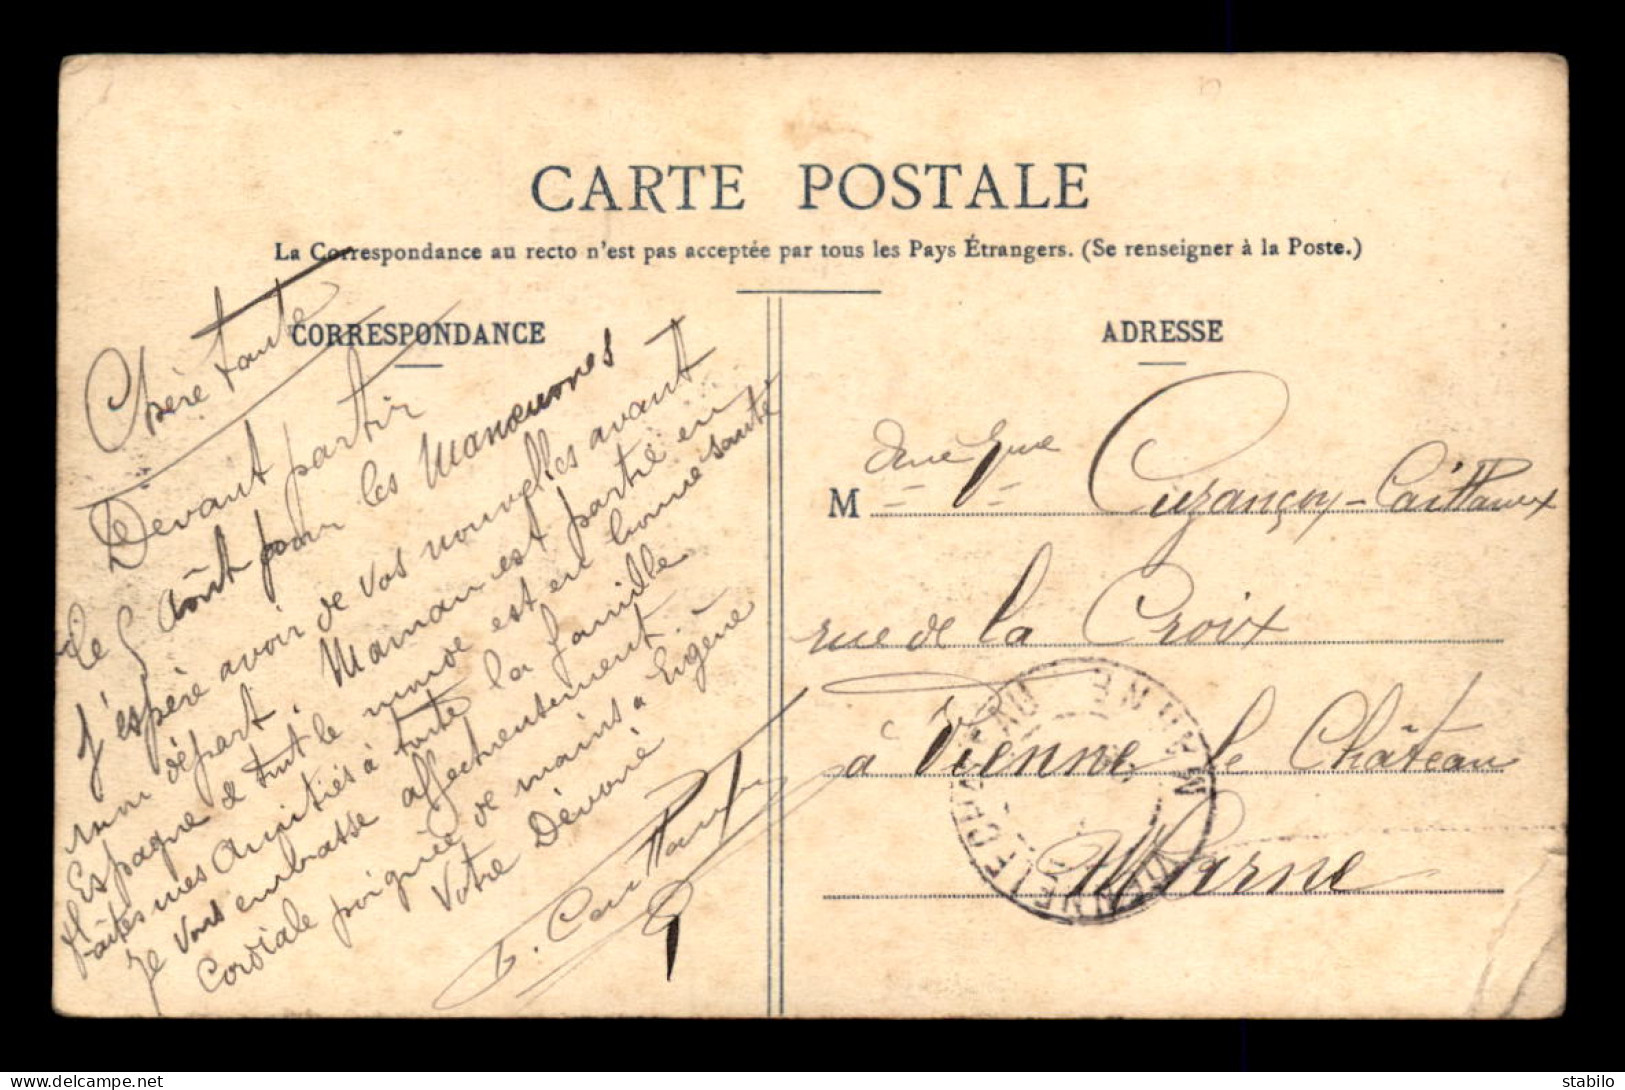 CARTE POSTALE
La Correspondance au recto n'est pas acceptée par tous les Pays Étrangers. (Se renseigner à la Poste.)
CORRESPONDANCE
Chère tante
Devant partir
le 5 Août pour les Manœuvres
J'espère avoir de vos nouvelles avant
mon départ. Maman est partie en
Espagne & tout le monde est en bonne santé
faites mes Amitiés à toute la famille
Je vous embrasse affectueusement.
Cordiale poignée de mains à Eugène
Votre Dévoué
ADRESSE
M Vve Cuzançoy-Caillaux
rue de la Croix
à Vienne le Château
Marne
VIENNE-LE-CHATEAU
MARNE
delcampe.net
stabilo